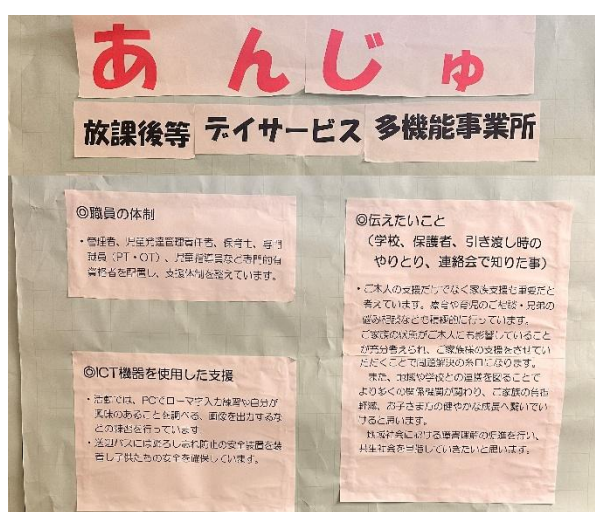 あんじゅ
放課後等 デイサービス 多機能事業所
◎職員の体制
・管理者、児童発達管理責任者、保育士、専門
職員（PT・OT）、児童指導員など専門的有
資格者を配置し、支援体制を整えています。
◎ICT機器を使用した支援
・活動では、PCでローマ字入力練習や自分が
興味のあることを調べる、画像を出力するな
どの練習を行っています
・送迎バスには降ろし忘れ防止の安全装置を装
着し子供たちの安全を確保しています。
◎伝えたいこと
（学校、保護者、引き渡し時の
やりとり、連絡会で知りた事）
・ご本人の支援だけでなく家族支援も重要だと
考えています。療育や育児のご相談・兄弟の
悩み相談なども積極的に行っています。
ご家族の状態がご本人にも影響していること
が充分考えられ、ご家族様の支援をさせてい
ただくことで問題解決の糸口になります。
また、地域や学校との連携を図ることで
より多くの関係機関が関わり、ご家族の負担
軽減、お子さま方の健やかな成長へ繋いでい
けると思います。
地域社会における障害理解の促進を行い、
共生社会を目指していきたいと思います。